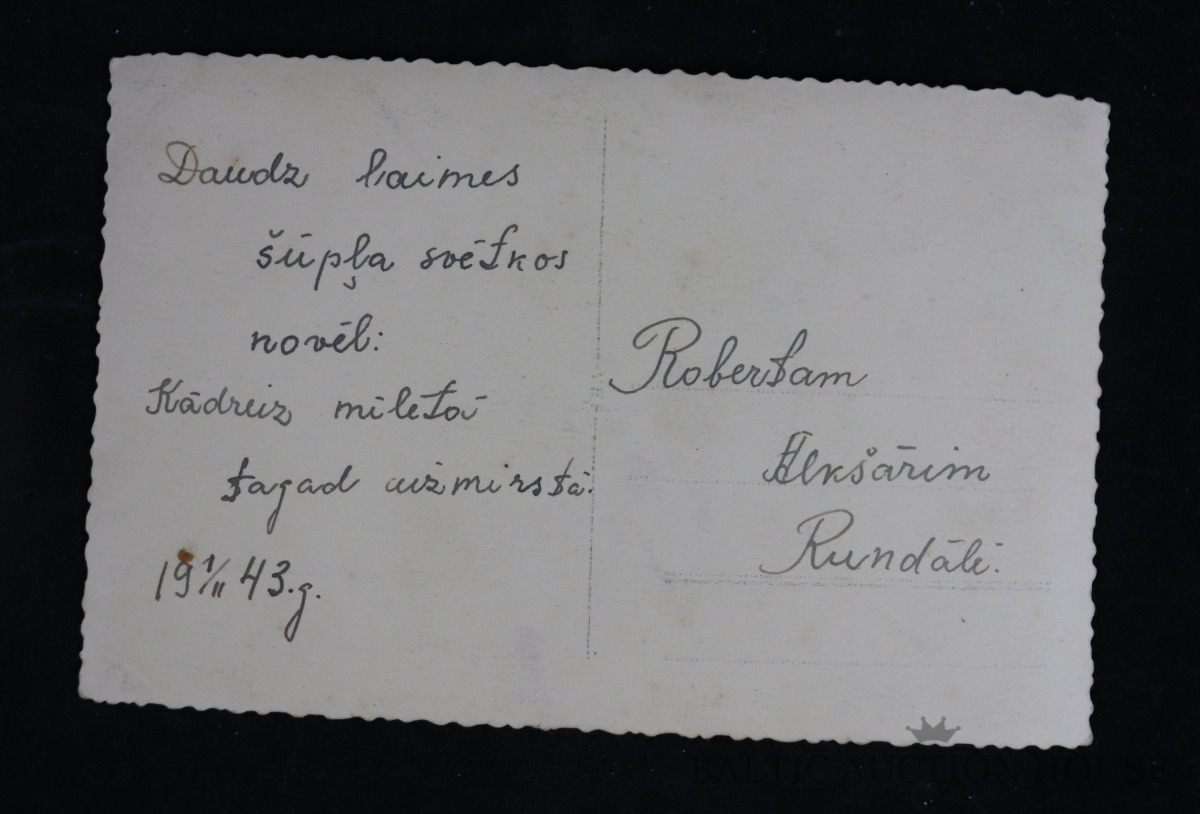 Daudz laimes
šūpļa svētkos
novēl:
Kādreiz mīletā
tagad aizmirstā.
19 1/II 43.g.
Robertam
Alkšārim
Rundālē.
BALTIC AUCTION HOUSE